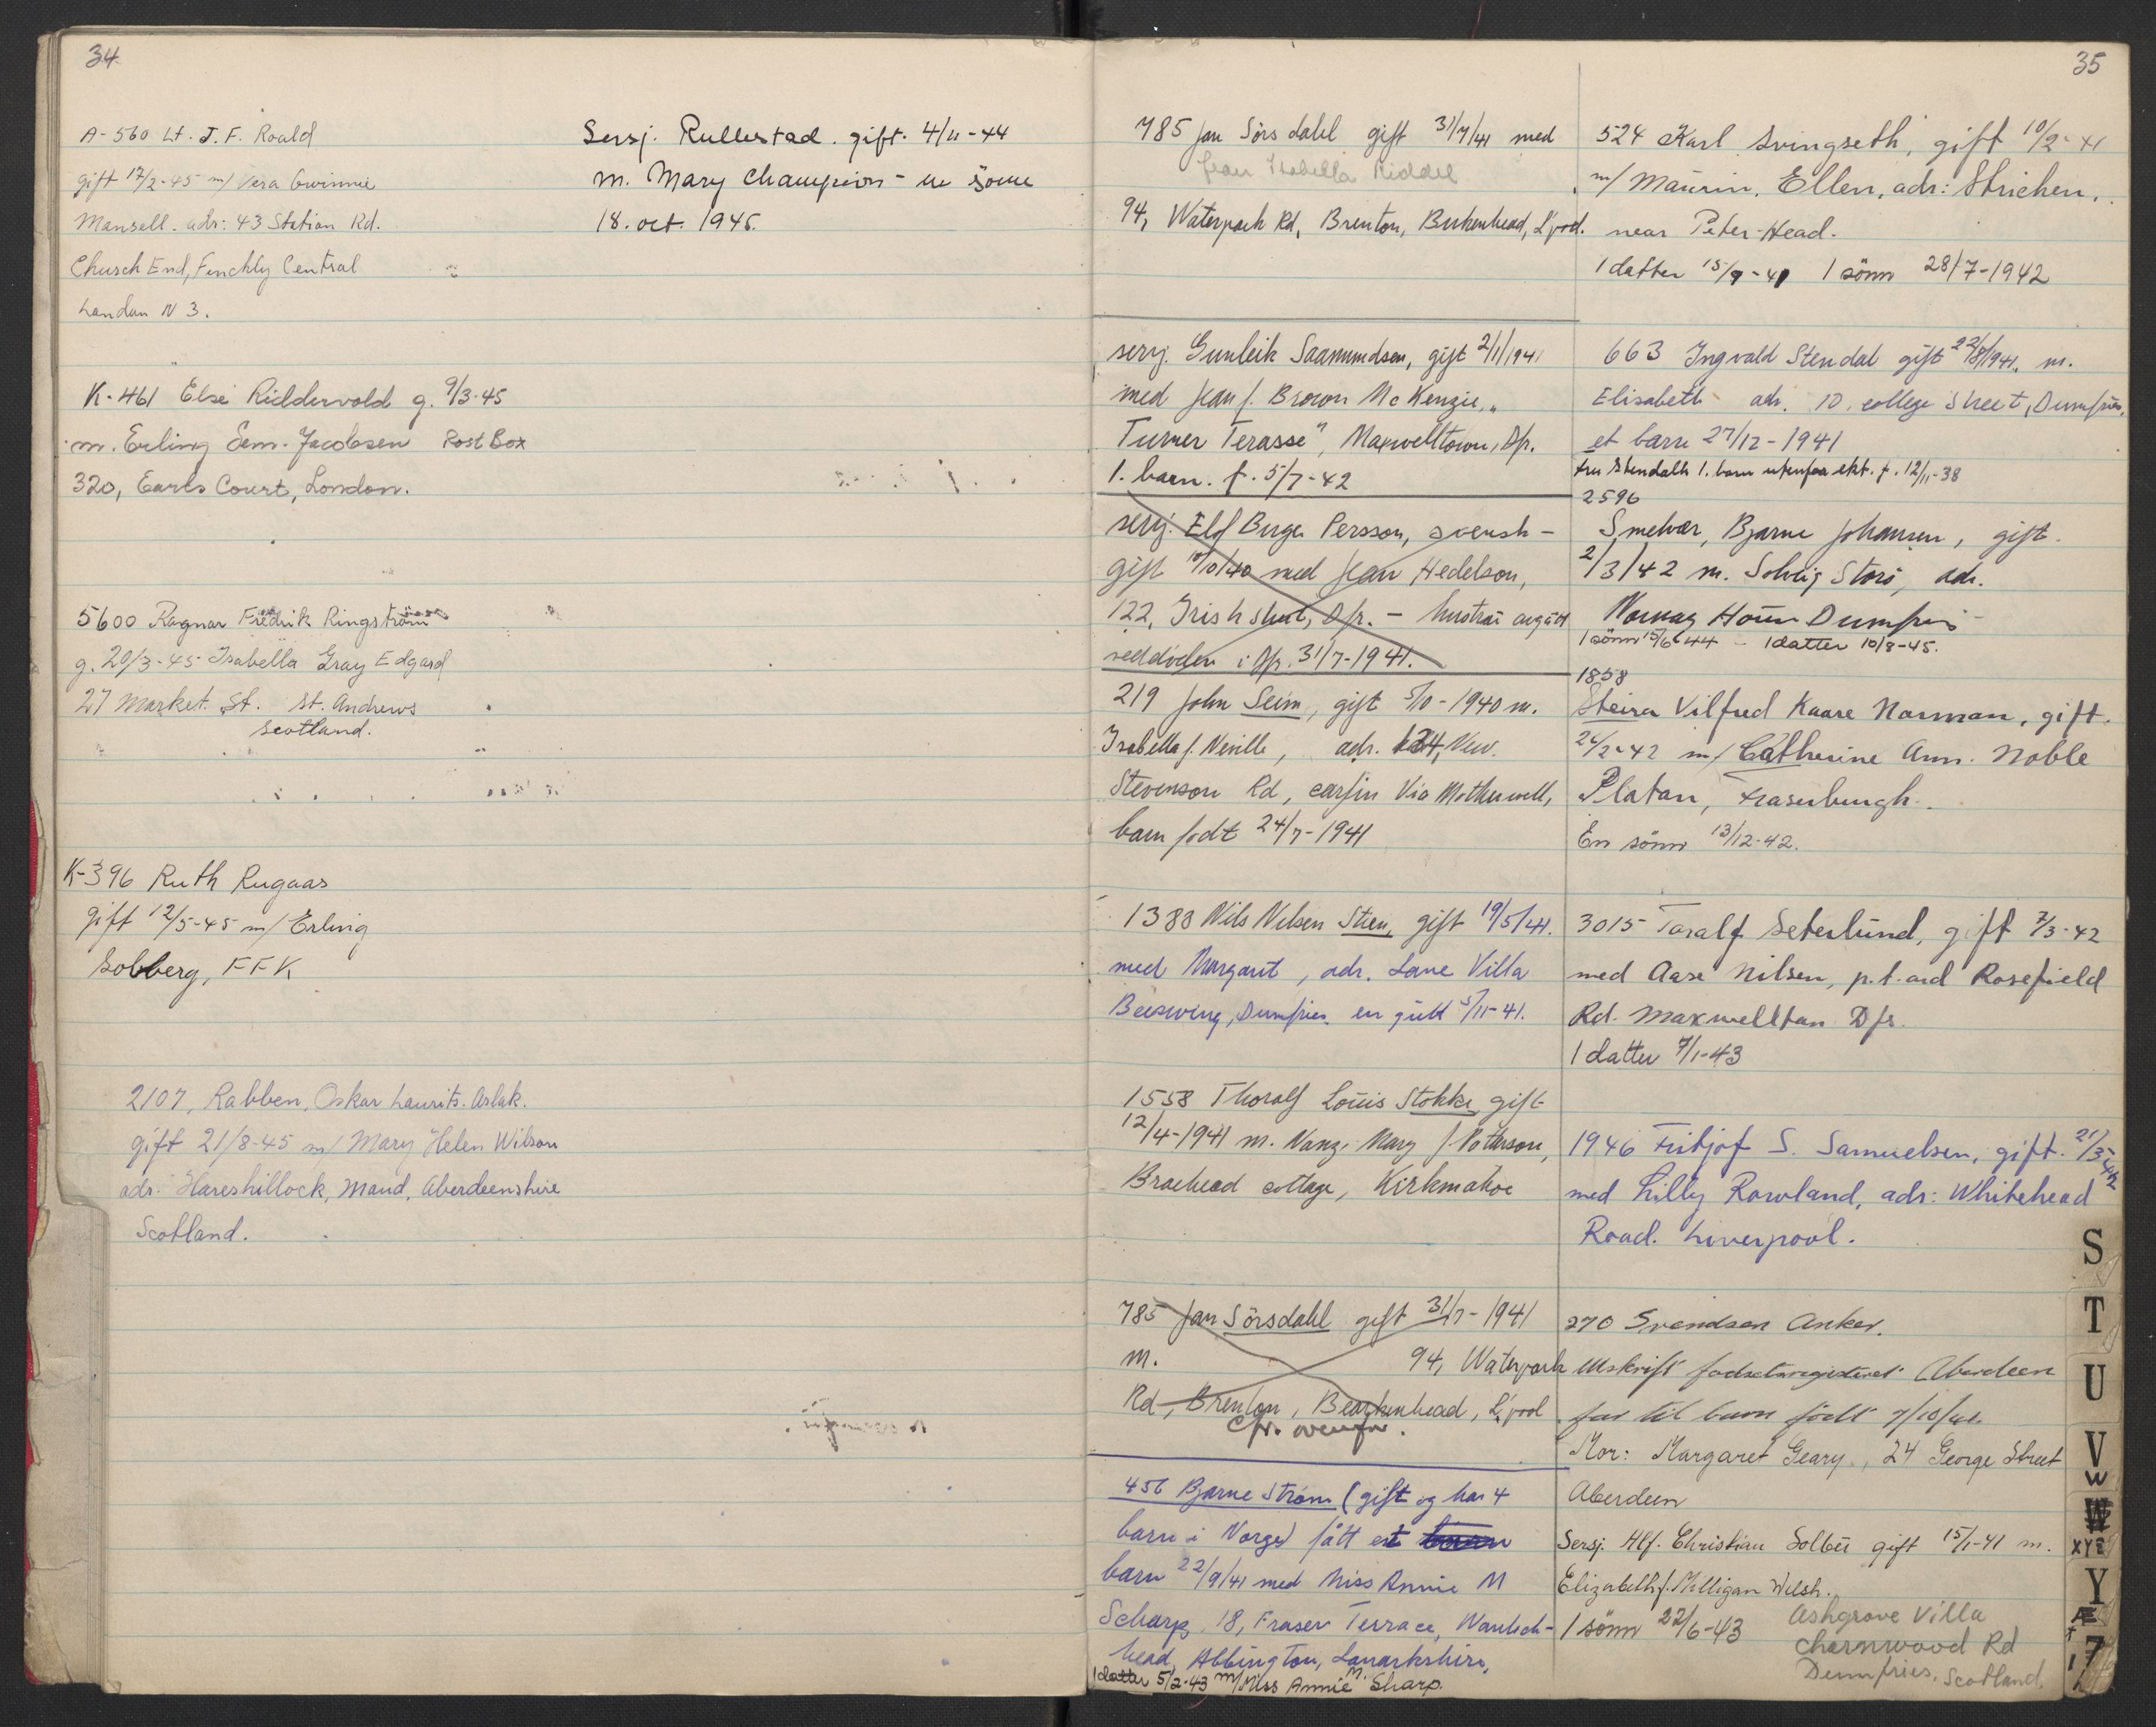 34
A-560 Lt. J. F. Roald
gift 17/2-45 m/ Vera Gwinnie
Mansell. adr: 43 Station Rd.
Church End, Finchly Central
London N 3.
K-461 Else Riddervold g. 9/3-45
m. Erling Sem-Jacobsen Post Box
320, Earls Court, London.
5600 Ragnar Fredrik Ringström
g. 20/3-45 Isabella Gray Edgard
27 Market. St. St. Andrews
Scotland.
K-396 Ruth Rugaas
gift 12/5-45 m/ Erling
Solberg, FFK
2107, Rabben, Oskar Laurits. Aslak.
gift 21/8-45 m/ Mary Helen Wilson
adr. Hareshillock, Maud, Aberdeenshire
Scotland.
Sersj. Rullestad. gift. 4/11-44
m. Mary Champion - en sønn
18. oct. 1945.
35
785 Jan Sörsdahl gift 31/7/41 med
Jean Isabella Riddel
94, Waterpark Rd, Brenton, Birkenhead, L'pool.
serg. Gunleik Saamundsen, gift 2/1/1941
med Jean f. Brown McKenzie, "
Turner Terasse", Maxwelltown, Dfr.
1. barn. f. 5/7-42
serg. Elof Birger Persson, svensk -
gift 10/10/40 med Jean Hedelson,
122, Irish Street, Dfr. - hustru avgått
ved døden i Dfr. 31/7-1941.
219 John Seim, gift 5/10-1940 m.
Isabella f. Neville, adr. 124, New.
Stevenson Rd, carfin Via Motherwell,
barn født 24/7-1941
1383 Nils Nilsen Stien, gift 19/5/41.
med Margaret, adr. Lane Villa
Beeswing, Dumfries. en gutt 5/11-41.
1558 Thoralf Louis Stokke gift
12/4-1941 m. Nanzi Mary f. Paterson,
Braehead cottage, Kirkmahoe
785 Jan Sörsdahl gift 31/7-1941
m. 94, Waterpark
Rd, Brenton, Bearkenhead, L'pool
cfr. ovenfor.
456 Bjarne Strøm (gift og har 4
barn i Norge) fått et
barn 22/9/41 med Miss Annie M
Scharp, 18, Fraser Terrace, Wanlock-
head, Abbington, Lanarkshire,
1 datter 5/2-43 m/Miss Annie M. Sharp.
524 Karl Svingseth, gift 10/2-41
m/ Maurin, Ellen, adr: Strichen,
near Peter-Head.
1 datter 15/9-41 1 sönn 28/7-1942
663 Ingvald Stendal gift 22/8/1941. m.
Elisabeth adr. 10, college Street, Dumfries,
et barn 27/12-1941
fru Stendalh 1. barn utenfor ekt. f. 12/11-38
2596
Smelvær, Bjarne Johansen, gift
2/3/42 m. Solveig Storø, adr.
Norway House Dumfries
1 sönn 15/6 44 - 1 datter 10/8-45.
1858
Steira Vilfred Kaare Norman, gift.
24/2-42 m/ Catherine Ann. Noble
Platan, Fraserburgh.
En sönn 13/12-42.
3015 Toralf Seterlund, gift 7/3-42
med Aase Nilsen, p.t. ad Rosefield
Rd. Maxwelltan Dfs.
1 datter 7/1-43
1946 Fritjof S. Samuelsen, gift. 21/3-42
med Lilly Rowland, adr: Whitehead
Road. Liverpool.
270 Svendsen Anker.
Utskrift fødselsregisteret Aberdeen
far til barn födt 7/10/41
Mor: Margaret Geary, 24 George Street
Aberdeen
Sersj. Alf. Christian Solbu gift 15/1-41 m.
Elizabeth f. Milligan Welsh.
1 sönn 22/6-43 Ashgrove Villa
Charnwood Rd
Dumfries. Scotland.
S
T
U
V
W
W
XYZ
Y
Æ